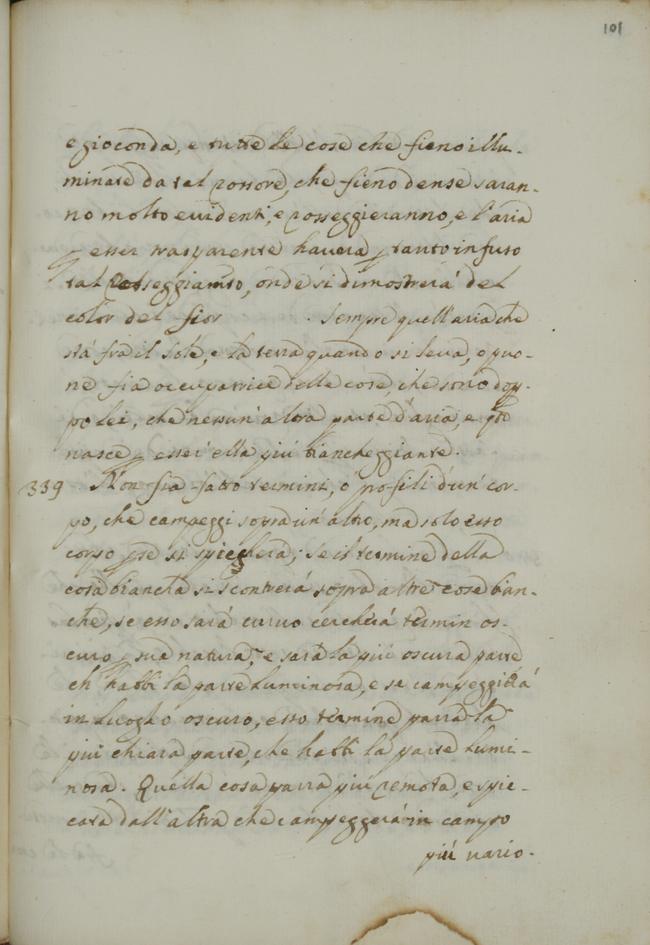 101
e gioconda, e tutte le cose che fieno illu-
minate da tal rossore, che fieno dense saran-
no molto evidenti, e rosseggieranno, e l'aria
p esser trasparente haverà p tanto infuso
tal rosseggiamto, onde si dimostrerà del
color del fior . Sempre quell'aria che
stà frà il Sole, e la terra quando si leva, o puo-
ne fia occupatrice delle cose, che sono dop-
po lei, che nessun'altra parte d'aria, e qto
nasce p esser ella più biancheggiante.
339 Non sia fatto termini, ò profili d'un cor-
po, che campeggi sopra un'altro, ma solo esso
corpo p se si spiegherà; Se il termine della
cosa bianca si scontrerà sopra altre cose bian-
che, se esso sarà curvo cercherà termin os-
curo p sua natura, e sarà la più oscura parte
ch' habbi la parte luminosa, e se campeggierà
in luogho oscuro, esso termine parrà la
più chiara parte, che habbi la parte lumi-
nosa. Quella cosa parrà più remota, e spic-
cata dall'altra che campeggerà in campo
più vario.